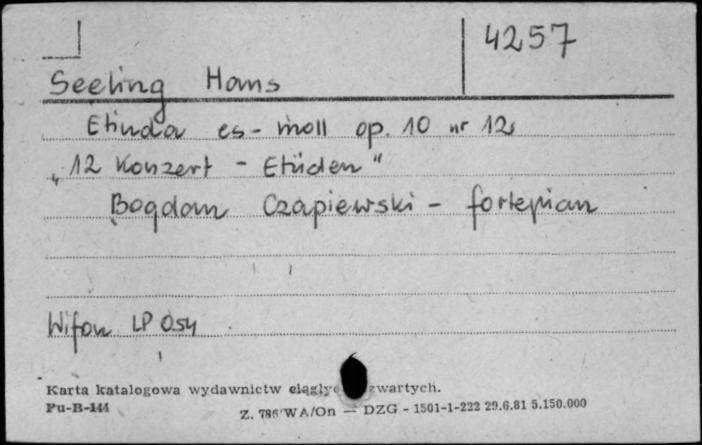 4257
Seeling Hans
Etiuda es-moll op. 10 nr 12
"12 Konzert - Etüden"
Bogdan Czapiewski - fortepian
Wifon LP 054
Karta katalogowa wydawnictw zwartych.
Pu-B-144
Z. 786 WA/On — DZG - 1501-1-222 29.6.81 5.150.000